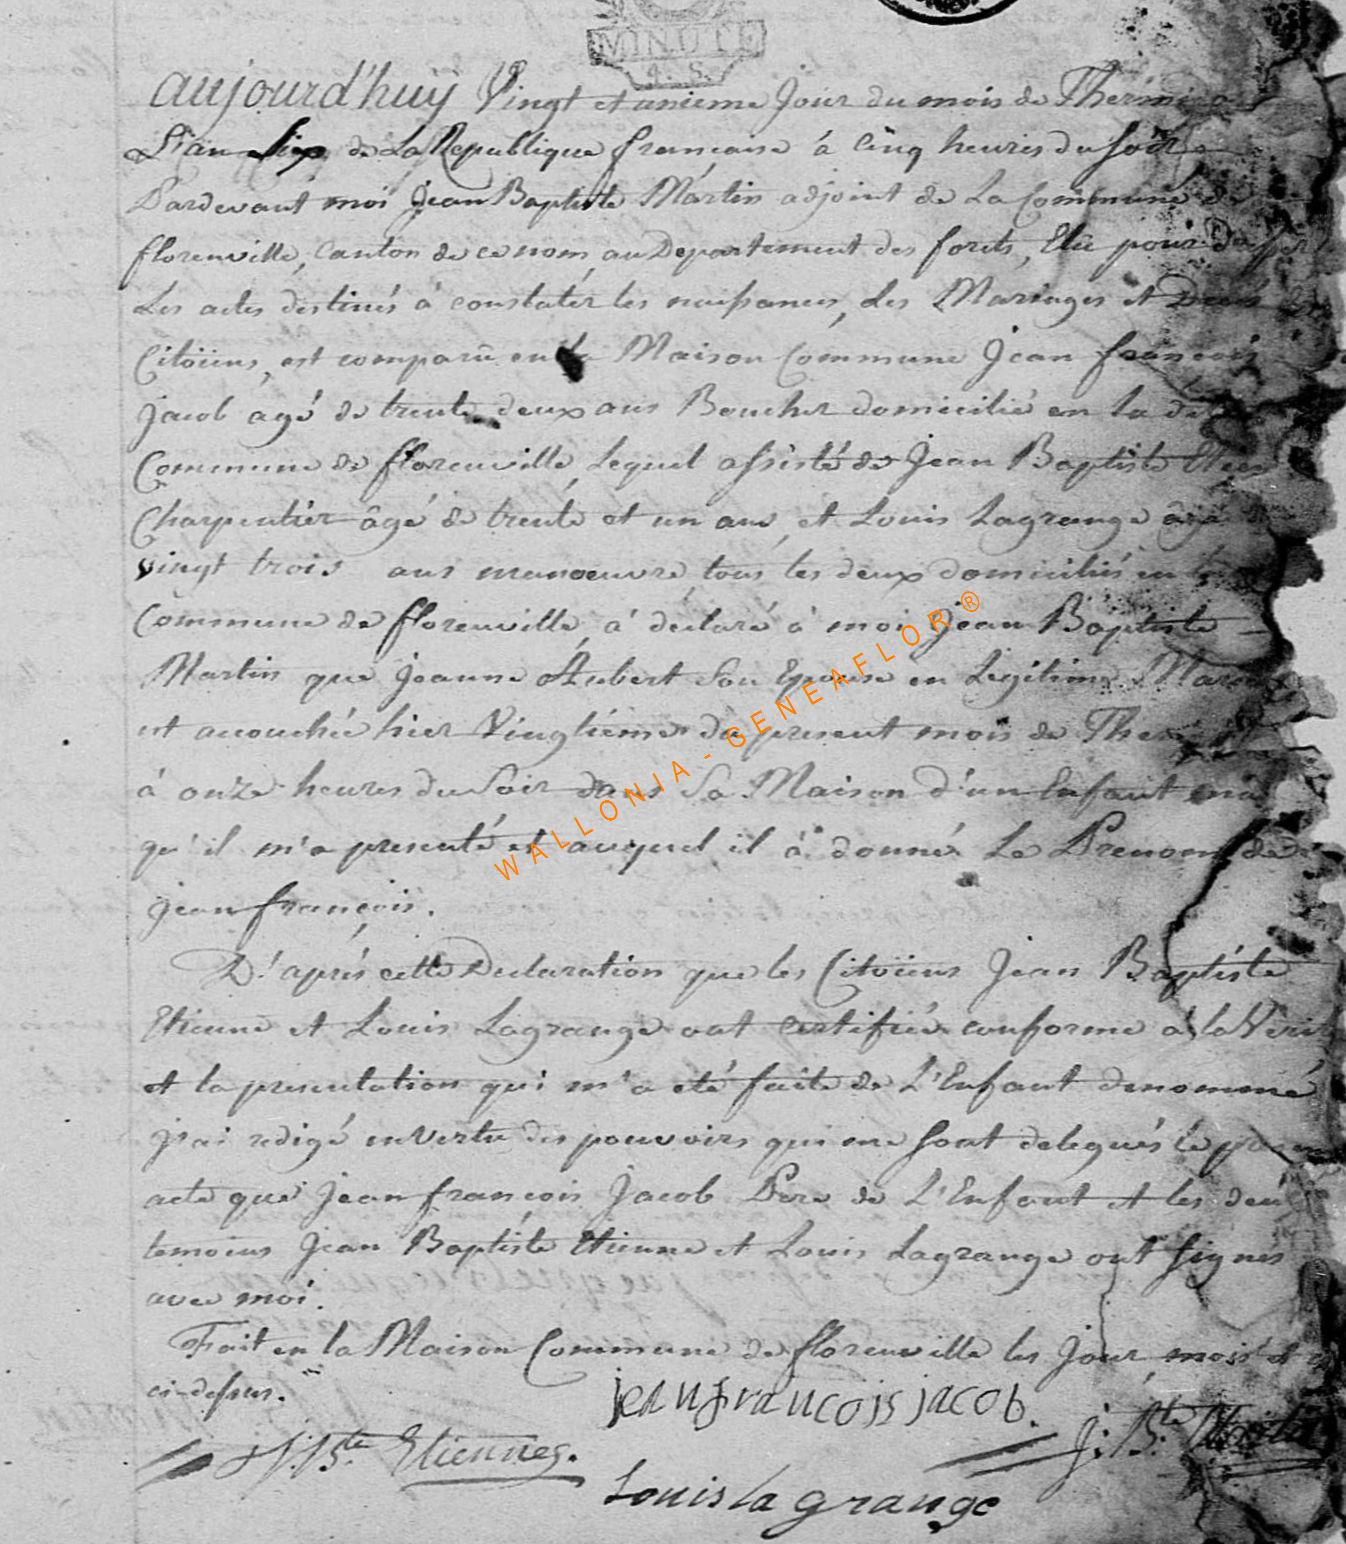 MINUTE
4. S.
aujourd'huÿ Vingt et unieme Jour du mois de Thermido
L'an Six de La Republique francaise à cinq heures du Soir
Pardevant moi Jean Baptiste Martin adjoint de La Commune de
florenville, Canton de ce nom, au Departement des forêts, Elu pour
Les actes destinés à constater les naissances, des Mariages et Decés
Citoïens, est comparû en la Maison Commune Jean françois
Jacob agé de trente deux ans Boucher domicilié en la
Commune de florenville, Lequel assisté de Jean Baptiste Etien
Charpentier âgé de trente et un ans, et Louis Lagrange âgé
vingt trois ans manoeuvre, tous les deux domiciliés en
Commune de florenville, à declaré à moi Jean Baptiste
Martin que Jeanne Aubert Son Epouse en Legitime Mariag
est accouchée hier Vingtieme du present mois de Ther
à onze heures du Soir dans Sa Maison d'un Enfant mal
qu'il m'a presenté et auquel il à donné Le Prenom de
Jean françois.
D'aprés cette Declaration que les Citoïens Jean Baptiste
Etienne et Louis Lagrange ont certifiée conforme à la Veri
et la presentation qui m'a eté faite de L'Enfant denommé
J'ai redigé en Vertu des pouvoirs qui me sont delegués le
acte que Jean francois Jacob Pere de L'Enfant et les deu
temoins Jean Baptiste Etienne et Louis Lagrange ont signes
avec moi.
Fait en la Maison Commune de florenville les Jour mois et
ci-dessus.
jean francois jacob.
J. Bte Etiennes.
J. Bte Martin
Louis la grange
WALLONIA - GENEAFLOR ®